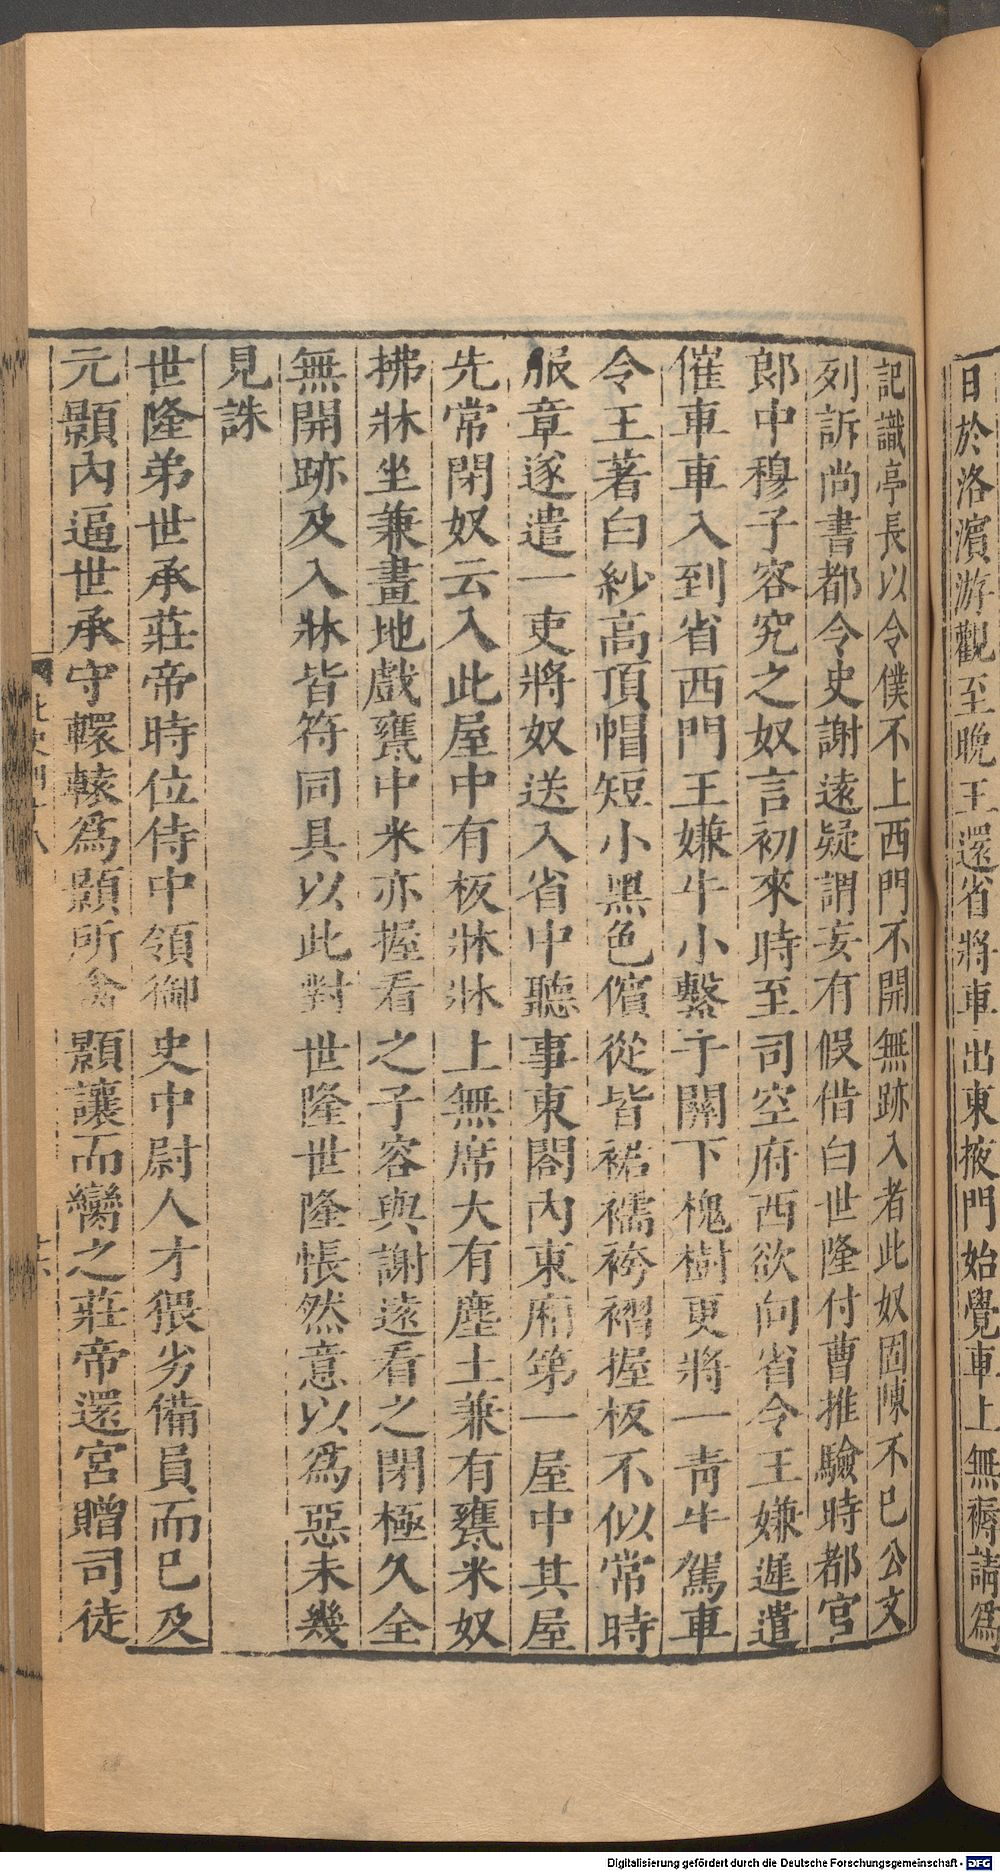 日於洛濱游觀至晚王還省將車出東掖門始覺車上無褥請爲
記識亭長以令僕不上西門不開無跡入者此奴固陳不已公文
列訴尚書都令史謝遠疑謂妄有假借白世隆付曹推驗時都官
郎中穆子容究之奴言初來時至司空府西欲向省令王嫌遲遣
催車車入到省西門王嫌牛小繫于關下槐樹更將一青牛駕車
令王著白紗高頂帽短小黑色儐從皆裙襦袴褶握板不似常時
服章遂遣一吏將奴送入省中聽事東閤內東廂第一屋中其屋
先常閉奴云入此屋中有板牀牀上無席大有塵土兼有甕米奴
拂牀坐兼畫地戲甕中米亦握看之子容與謝遠看之閉極久全
無開跡及入牀皆符同具以此對世隆世隆悵然意以爲惡未幾
見誅
世隆弟世承莊帝時位侍中領御史中尉人才猥劣備員而已及
元顥內逼世承守轘轅爲顥所禽顥讓而臠之莊帝還宮贈司徒
Digitalisierung gefördert durch die Deutsche Forschungsgemeinschaft - DFG